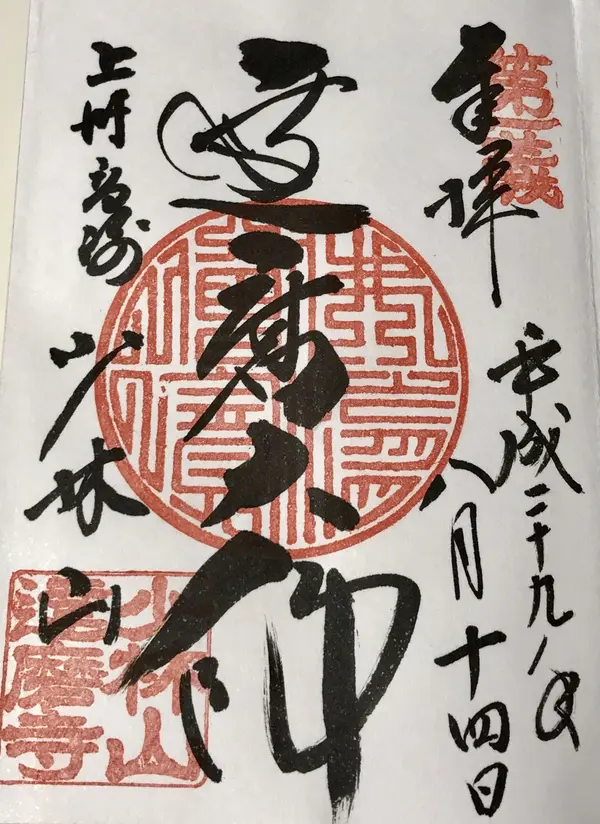 第一義
奉拝
平成二十九年
八月十四日
達磨大師
上州高崎
少林山
少林山
達磨寺